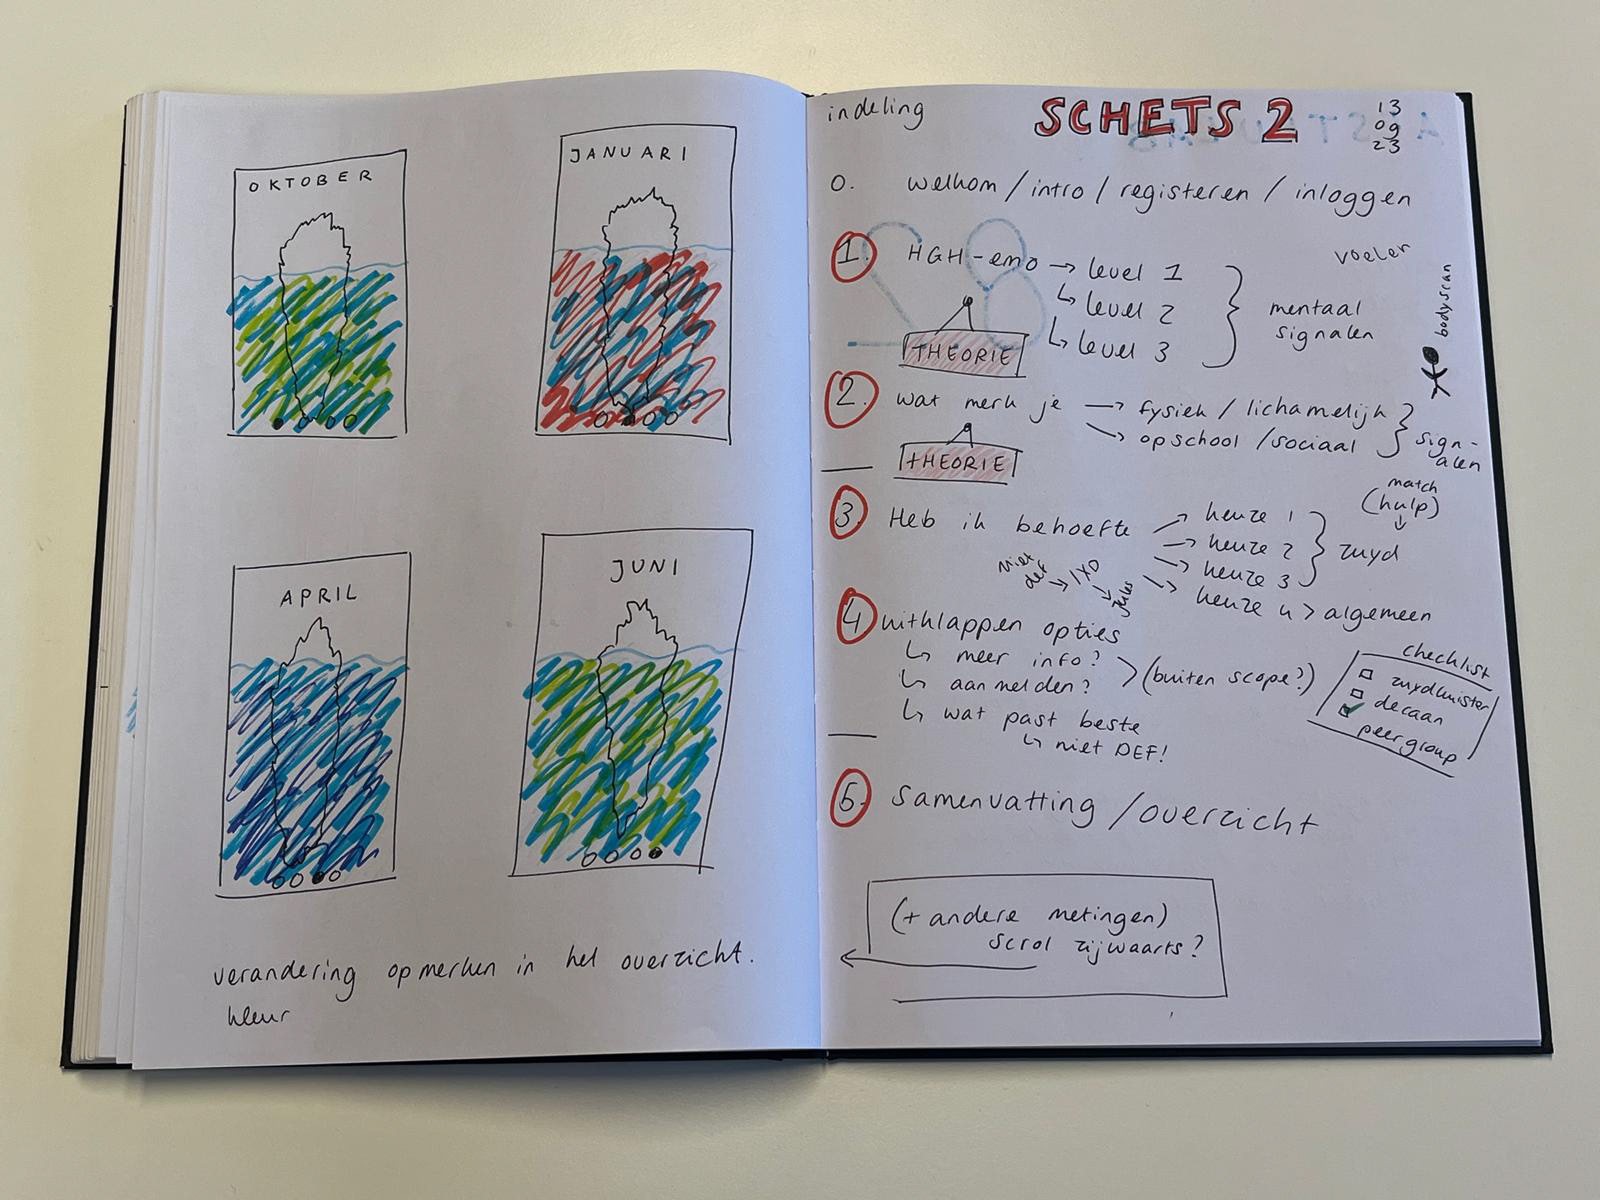 OKTOBER
JANUARI
APRIL
JUNI
verandering opmerken in het overzicht.
kleur
indeling
SCHETS 2
13
09
23
0. welkom / intro / registeren / inloggen
1. HGH-emo → level 1
↳ level 2
↳ level 3
mentaal
signalen
voeler
bodyscan
THEORIE
2. wat merk je → fysiek / lichamelijk
→ op school / sociaal
sign-
alen
THEORIE
3. Heb ik behoefte → keuze 1
→ keuze 2
→ keuze 3
→ keuze 4 > algemeen
zuyd
match
(hulp)
↓
niet
def → IXD
→ Jules
4 uitklappen opties
↳ meer info?
↳ aanmelden?
(buiten scope?)
↳ wat past beste
↳ niet DEF!
checklist
zuydluister
decaan
peergroup
5. samenvatting / overzicht
(+ andere metingen)
scrol zijwaarts?